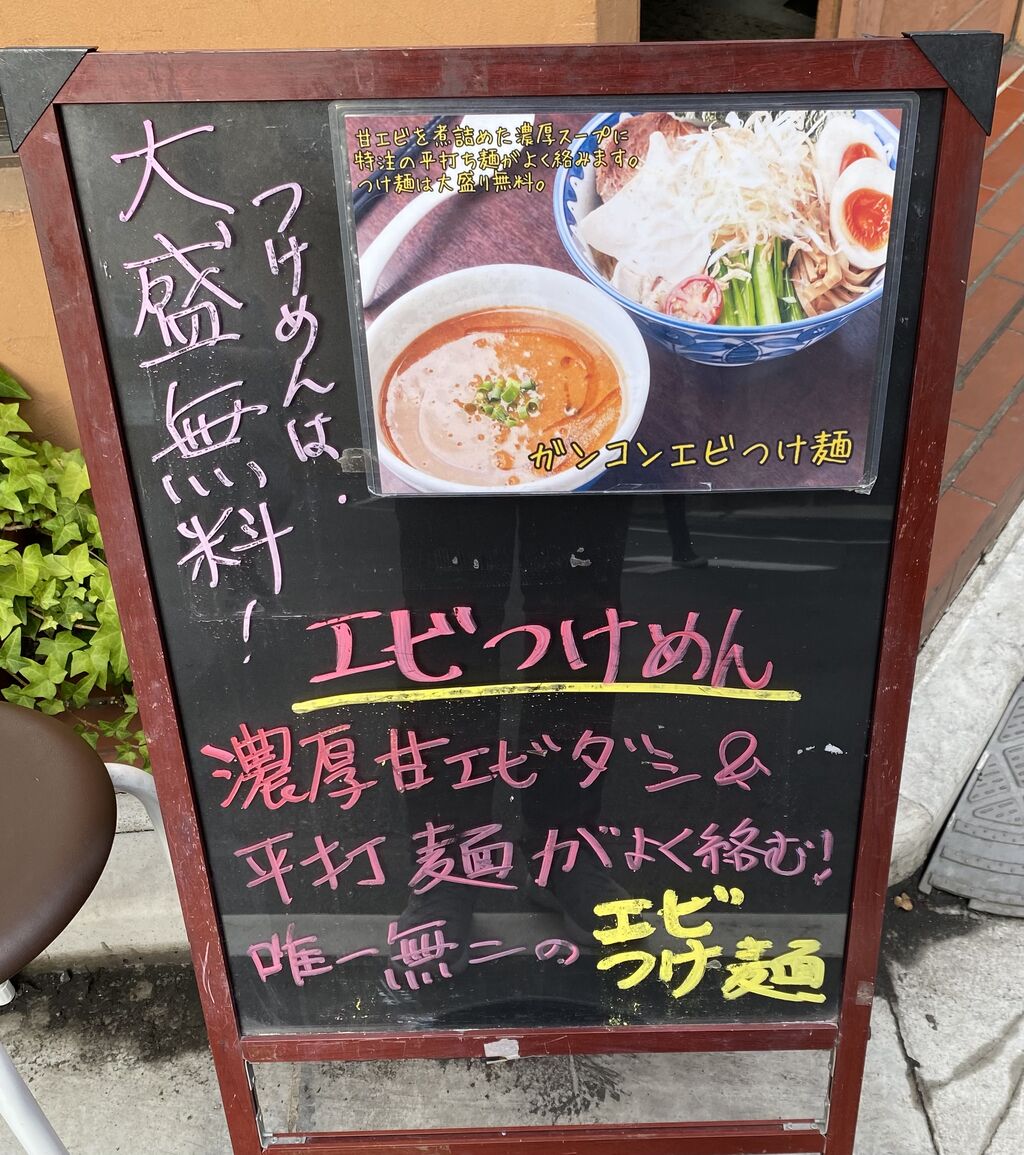 つけめんは
大盛無料!
甘エビを煮詰めた濃厚スープに
特注の平打ち麺がよく絡みます。
つけ麺は大盛り無料。
ガンコンエビつけ麺
エビつけめん
濃厚甘エビダシ&
平打麺がよく絡む!
唯一無二の
エビ
つけ麺